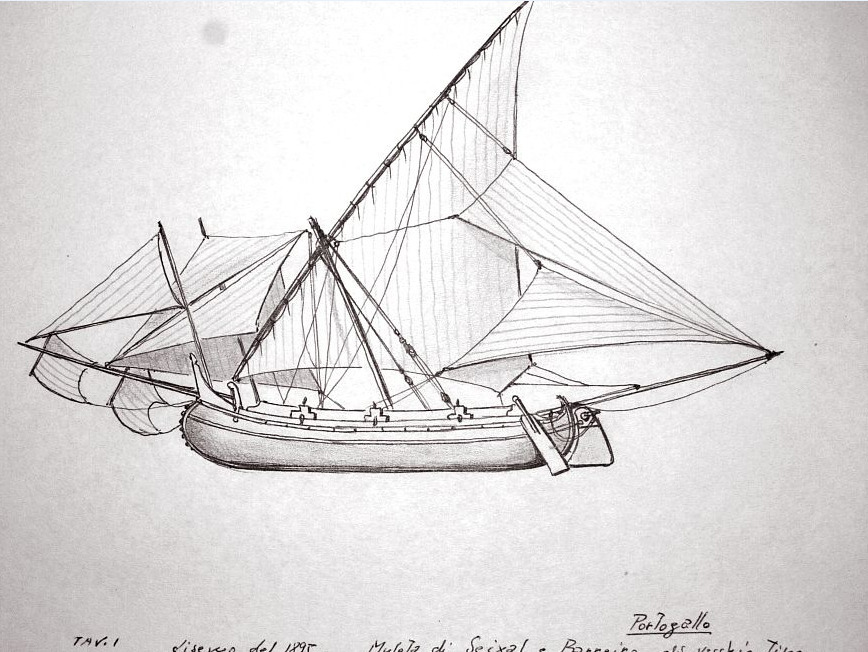 Portogallo
TAV. I disegno del 1895 Muleta di Seixal e Barreiro